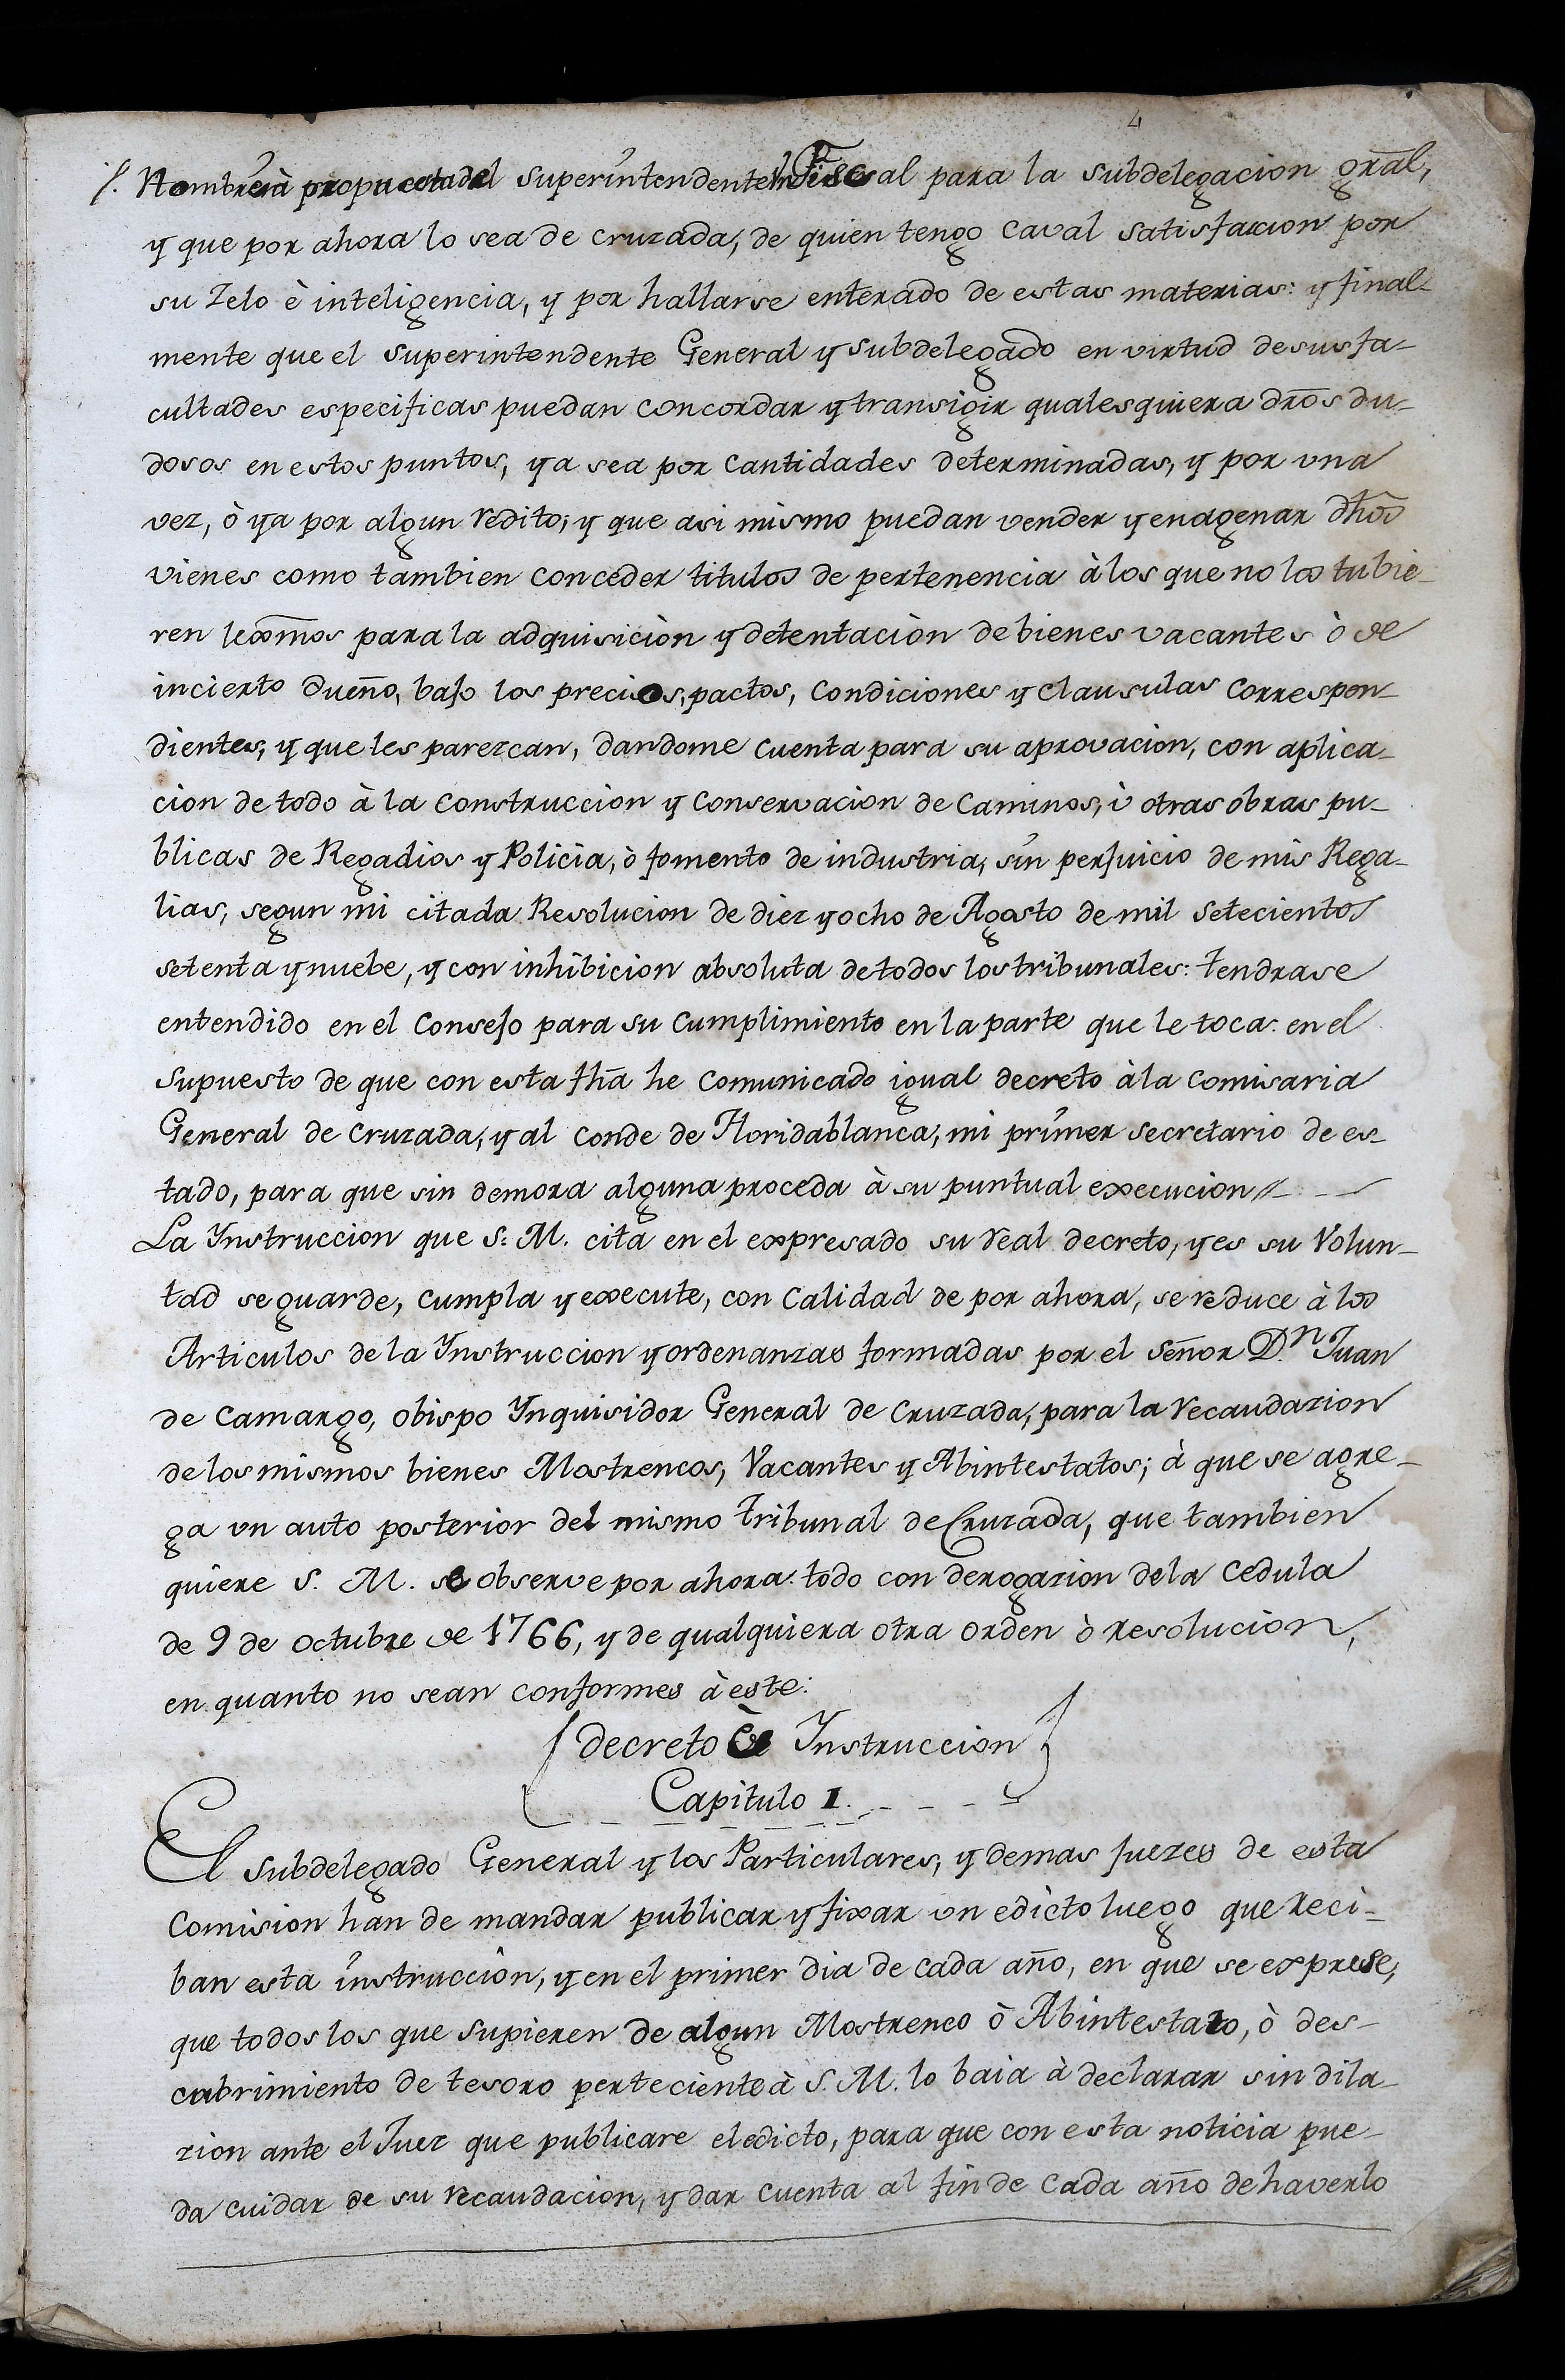 4
Nombre à propuesta del superintendente vn Fiscal para la subdelegacion grãl,
y que por ahora lo sea de cruzada, de quien tengo caval satisfaccion por
su zelo è inteligencia, y por hallarse enterado de estas materias: y final-
mente que el superintendente General y subdelegado en virtud de sus fa-
cultades especificas puedan concordar y transigir qualesquiera drõs du-
dosos en estos puntos, ya sea por cantidades determinadas, y por una
vez, ò ya por algun redito; y que asi mismo puedan vender y enagenar dhõs
vienes como tambien conceder titulos de pertenencia à los que no los tubie-
ren lexmõs para la adquisiciòn y detentaciòn de bienes vacantes ò de
incierto dueño, bajo los precios, pactos, condiciones y clausulas correspon-
dientes, y que les parezcan, dandome cuenta para su aprovacion, con aplica-
cion de todo à la construccion y conservacion de caminos, ù otras obras pu-
blicas de Regadios y Policia, ò fomento de industria, sin perjuicio de mis Rega-
lias, segun mi citada Resolucion de diez y ocho de Agosto de mil setecientos
setenta y nuebe, y con inhibicion absoluta de todos los tribunales: tendrase
entendido en el consejo para su cumplimiento en la parte que le toca: en el
supuesto de que con esta fhã he comunicado igual decreto à la comisaria
General de cruzada, y al conde de Floridablanca, mi primer secretario de es-
tado, para que sin demora alguna proceda à su puntual execucion //
La Ynstruccion que S. M. cita en el expresado su real decreto, y es su Volun-
tad se guarde, cumpla y execute, con calidad de por ahora, se reduce à los
Articulos de la Ynstruccion y ordenanzas formadas por el señor D.n Juan
de Camargo, obispo Ynquisidor General de cruzada, para la recaudazion
de los mismos bienes Mostrencos, Vacantes y Abintestatos; à que se agre-
ga un auto posterior del mismo tribunal de Cruzada, que tambien
quiere S. M. se observe por ahora: todo con derogazion de la cedula
de 9 de octubre de 1766, y de qualquiera otra orden ò resolucion,
en quanto no sean conformes à este:
decreto è Ynstruccion
Capitulo 1.
El subdelegado General y los Particulares, y demas juezes de esta
comision han de mandar publicar y fixar un edicto luego que reci-
ban esta instruccion, y en el primer dia de cada año, en que se exprese,
que todos los que supieren de algun Mostrenco ò Abintestato, ò des-
cubrimiento de tesoro perteciente à S. M. lo baia à declarar sin dila-
zion ante el Juez que publicare el edicto, para que con esta noticia pue-
da cuidar de su recaudacion, y dar cuenta al fin de cada año de haverlo